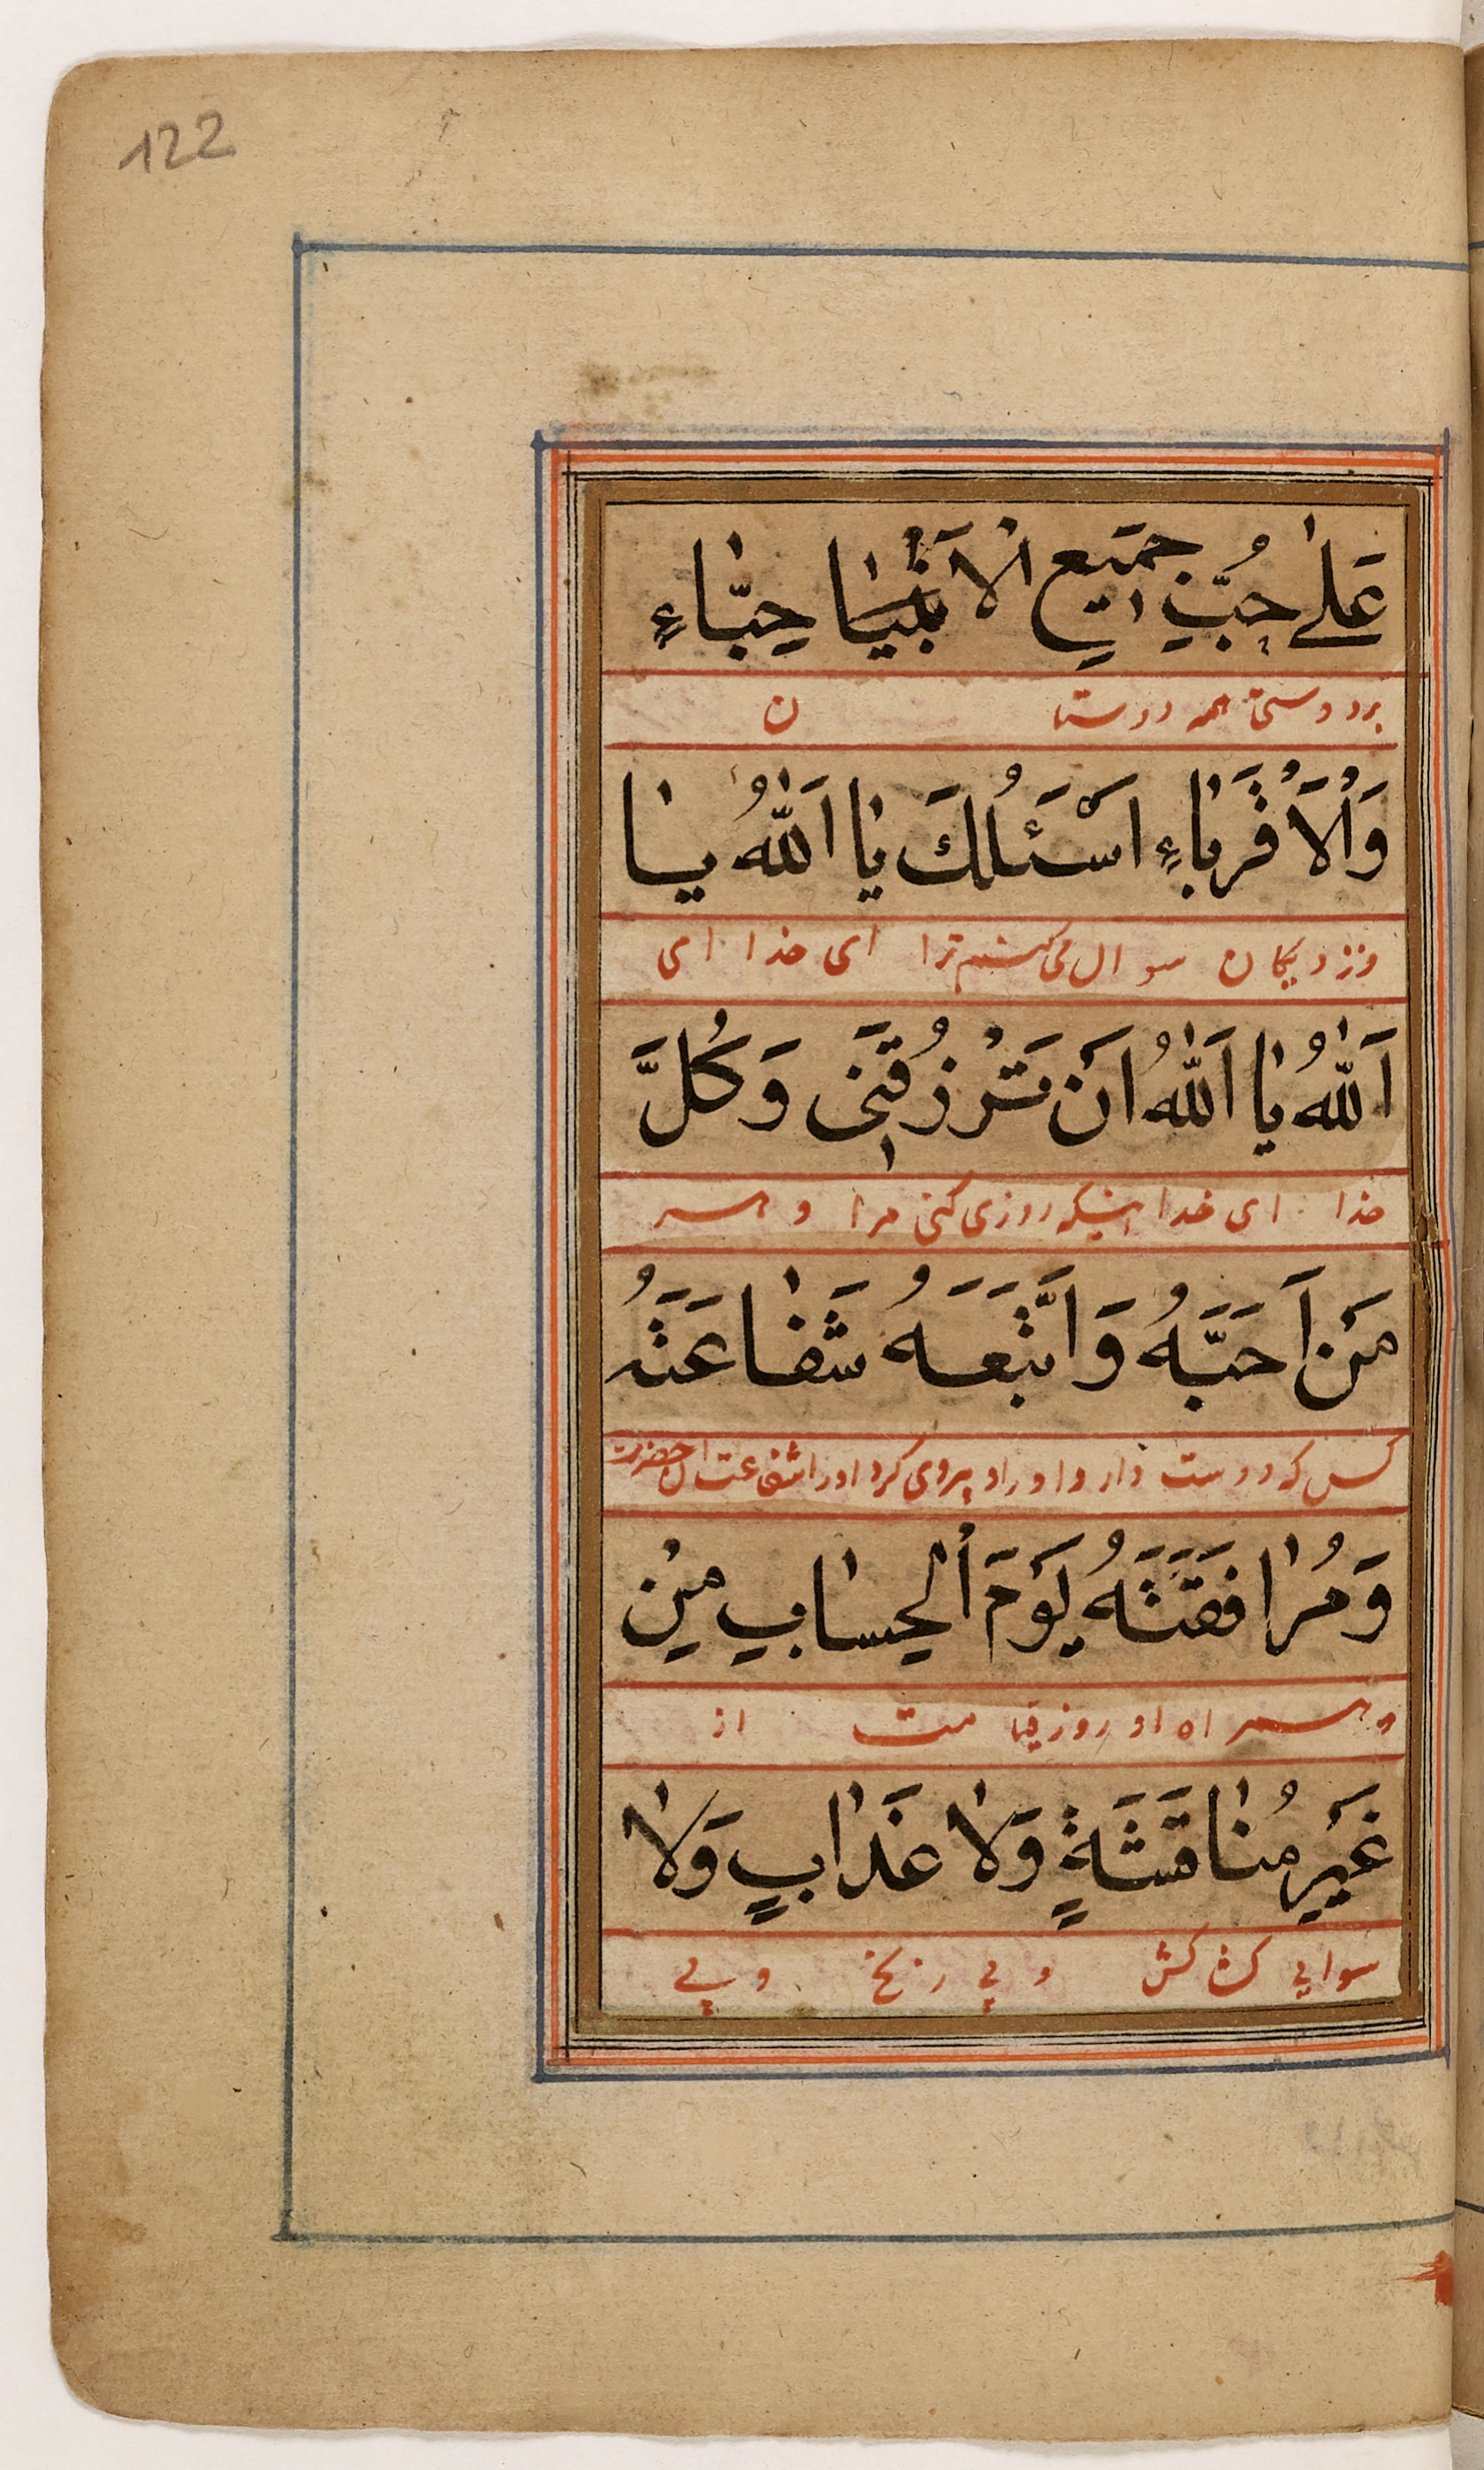 122
عَلٰى حُبِّ جَمِيعِ الْاَنْبِيَا حِبَّاءِ
بر دوستی همه دوستان
وَالْاَقْرَبَاءِ اَسْئَلُكَ يَا اَللّٰهُ يَا
ونزدیکان سوال می کنم ترا ای خدا ای
اَللّٰهُ يَا اَللّٰهُ اَنْ تَرْزُقَنِى وَكُلَّ
خدا ای خدا اینکه روزی کنی مرا و هر
مَنْ اَحَبَّهُ وَاتَّبَعَهُ شَفَاعَتَهُ
کس که دوست دارد او را و پیروی کرد اورا شفاعت آن حضرت
وَمُرَافَقَتَهُ يَوْمَ الْحِسَابِ مِنْ
و همراه او روز قیامت از
غَيْرِ مُنَاقَشَةٍ وَلَا عَذَابٍ وَلَا
سوایی کش کش و بی رنج و بی